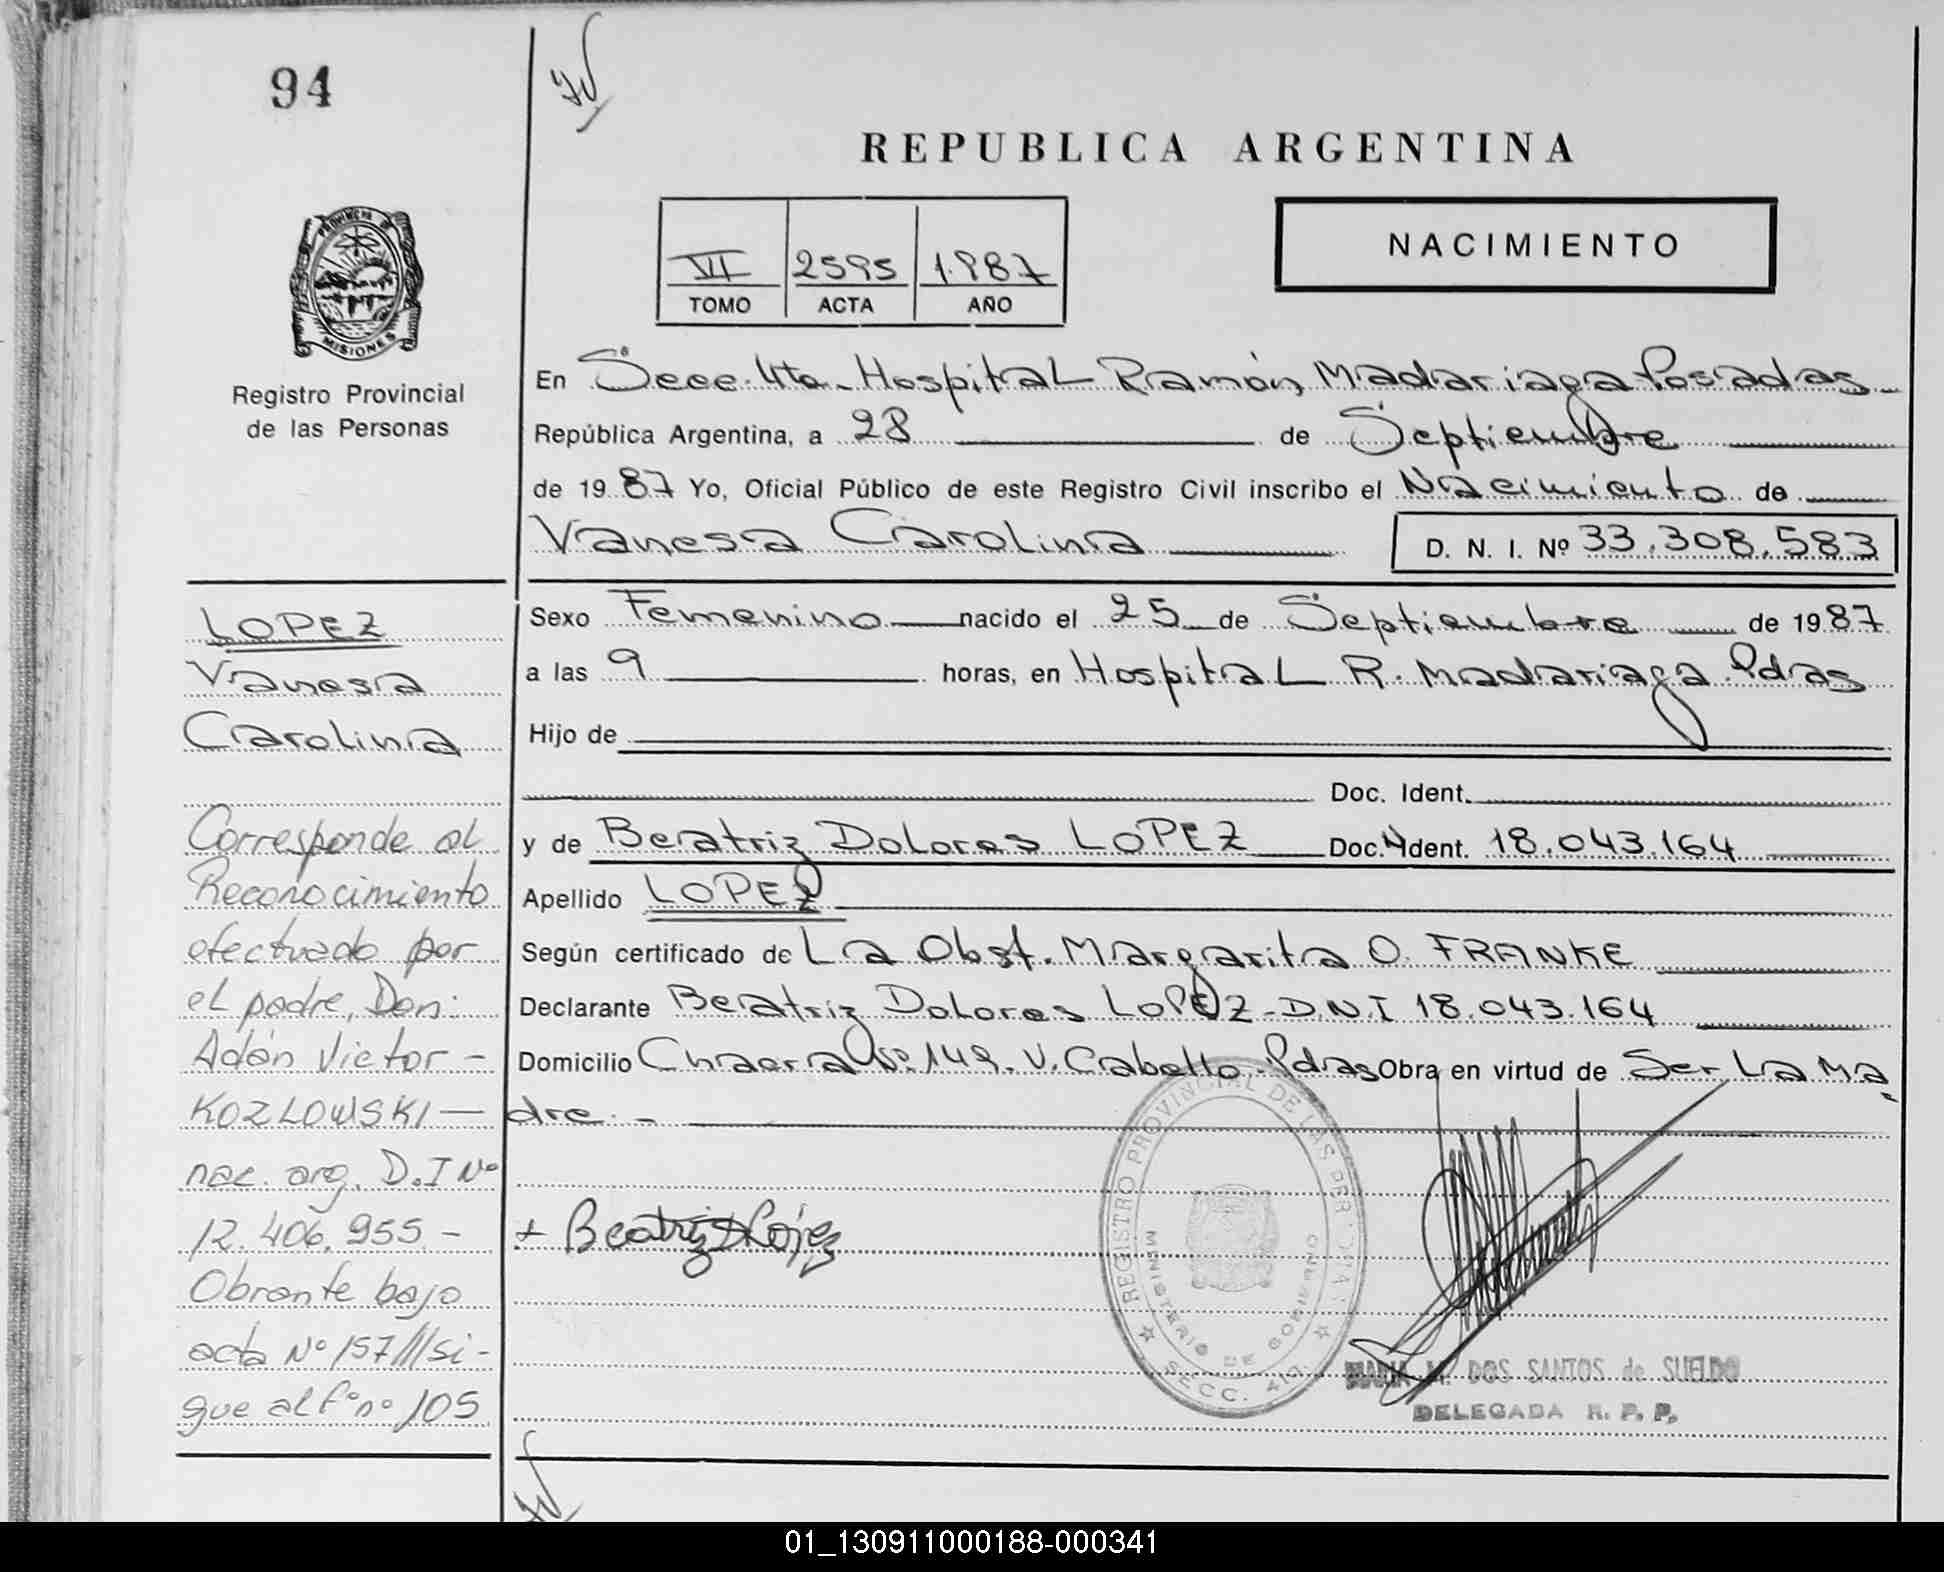 94
REPUBLICA ARGENTINA
VI 2595 1.987
TOMO ACTA AÑO
NACIMIENTO
PROVINCIA DE
MISIONES
Registro Provincial
de las Personas
En Secc. 4ta. Hospital Ramón Madariaga Posadas
República Argentina, a 28 de Septiembre
de 1987 Yo, Oficial Público de este Registro Civil inscribo el Nacimiento de
Vanesa Carolina D. N. I. Nº 33.308.583
LOPEZ
Vanesa
Carolina
Corresponde al
Reconocimiento
efectuado por
el padre, Don:
Adán Victor -
KOZLOWSKI —
nac. arg. D.I Nº
12.406.955 -
Obrante bajo
acta Nº 157///si-
gue al fº nº 105
Sexo Femenino nacido el 25 de Septiembre de 1987
a las 9 horas, en Hospital R. Madariaga. Pdas
Hijo de
Doc. Ident.
y de Beatriz Dolores LOPEZ Doc. Ident. 18.043.164
Apellido LOPEZ
Según certificado de La Obst. Margarita O. FRANKE
Declarante Beatriz Dolores LOPEZ - D.N.I 18.043.164
Domicilio Chacra Nº 149. V. Cabello. Pdas Obra en virtud de Ser La Ma
dre. -
+ Beatriz D López
REGISTRO PROVINCIAL DE LAS PERSONAS
MINISTERIO DE GOBIERNO
SECC. 4ta.
MARIA M. DOS SANTOS de SUELDO
DELEGADA R. P. P.
01_130911000188-000341